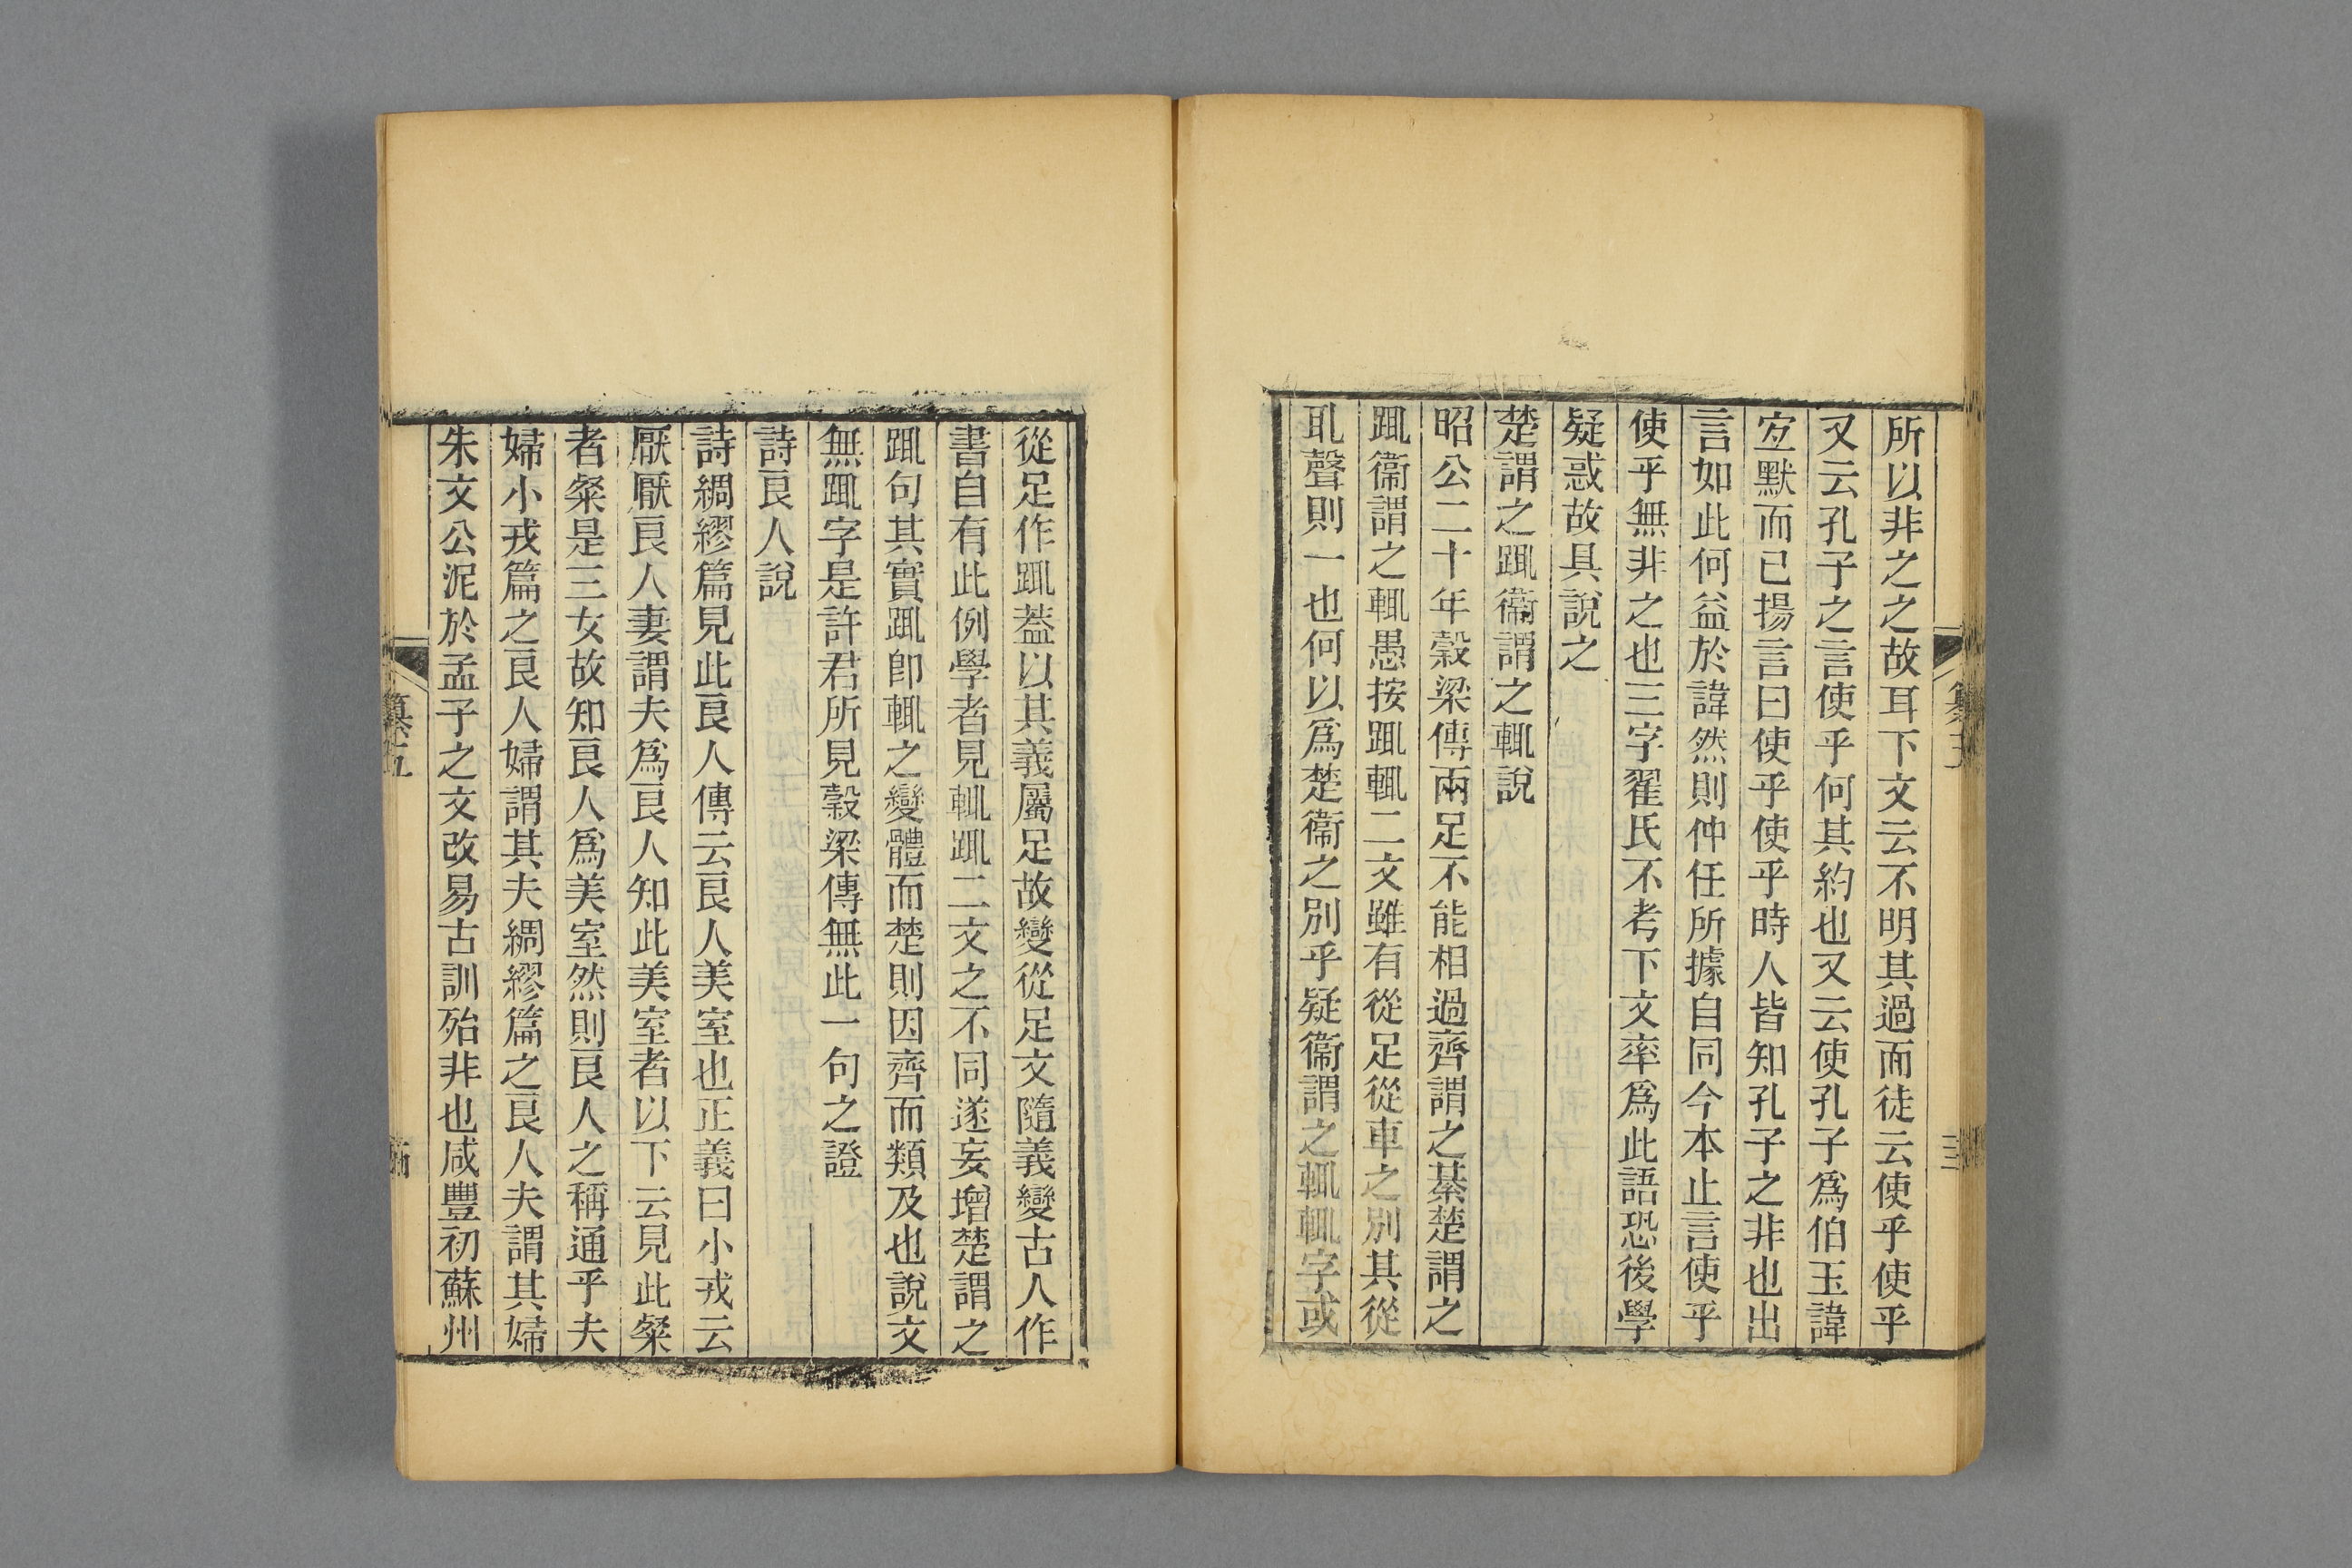 所以非之之故耳下文云不明其過而徒云使乎使乎
又云孔子之言使乎何其約也又云使孔子爲伯玉諱
宐默而已揚言曰使乎使乎時人皆知孔子之非也出
言如此何益於諱然則仲任所據自同今本止言使乎
使乎無非之也三字翟氏不考下文率爲此語恐後學
疑惑故具說之
楚謂之踂衞謂之輒說
昭公二十年穀梁傳兩足不能相過齊謂之綦楚謂之
踂衞謂之輒愚按踂輒二文雖有從足從車之別其從
耴聲則一也何以爲楚衞之別乎疑衞謂之輒輒字或
從足作踂蓋以其義屬足故變從足文隨義變古人作
書自有此例學者見輒踂二文之不同遂妄增楚謂之
踂句其實踂卽輒之變體而楚則因齊而類及也說文
無踂字是許君所見穀梁傳無此一句之證
詩良人說
詩綢繆篇見此良人傳云良人美室也正義曰小戎云
厭厭良人妻謂夫爲良人知此美室者以下云見此粲
者粲是三女故知良人爲美室然則良人之稱通乎夫
婦小戎篇之良人婦謂其夫綢繆篇之良人夫謂其婦
朱文公泥於孟子之文改易古訓殆非也咸豐初蘇州